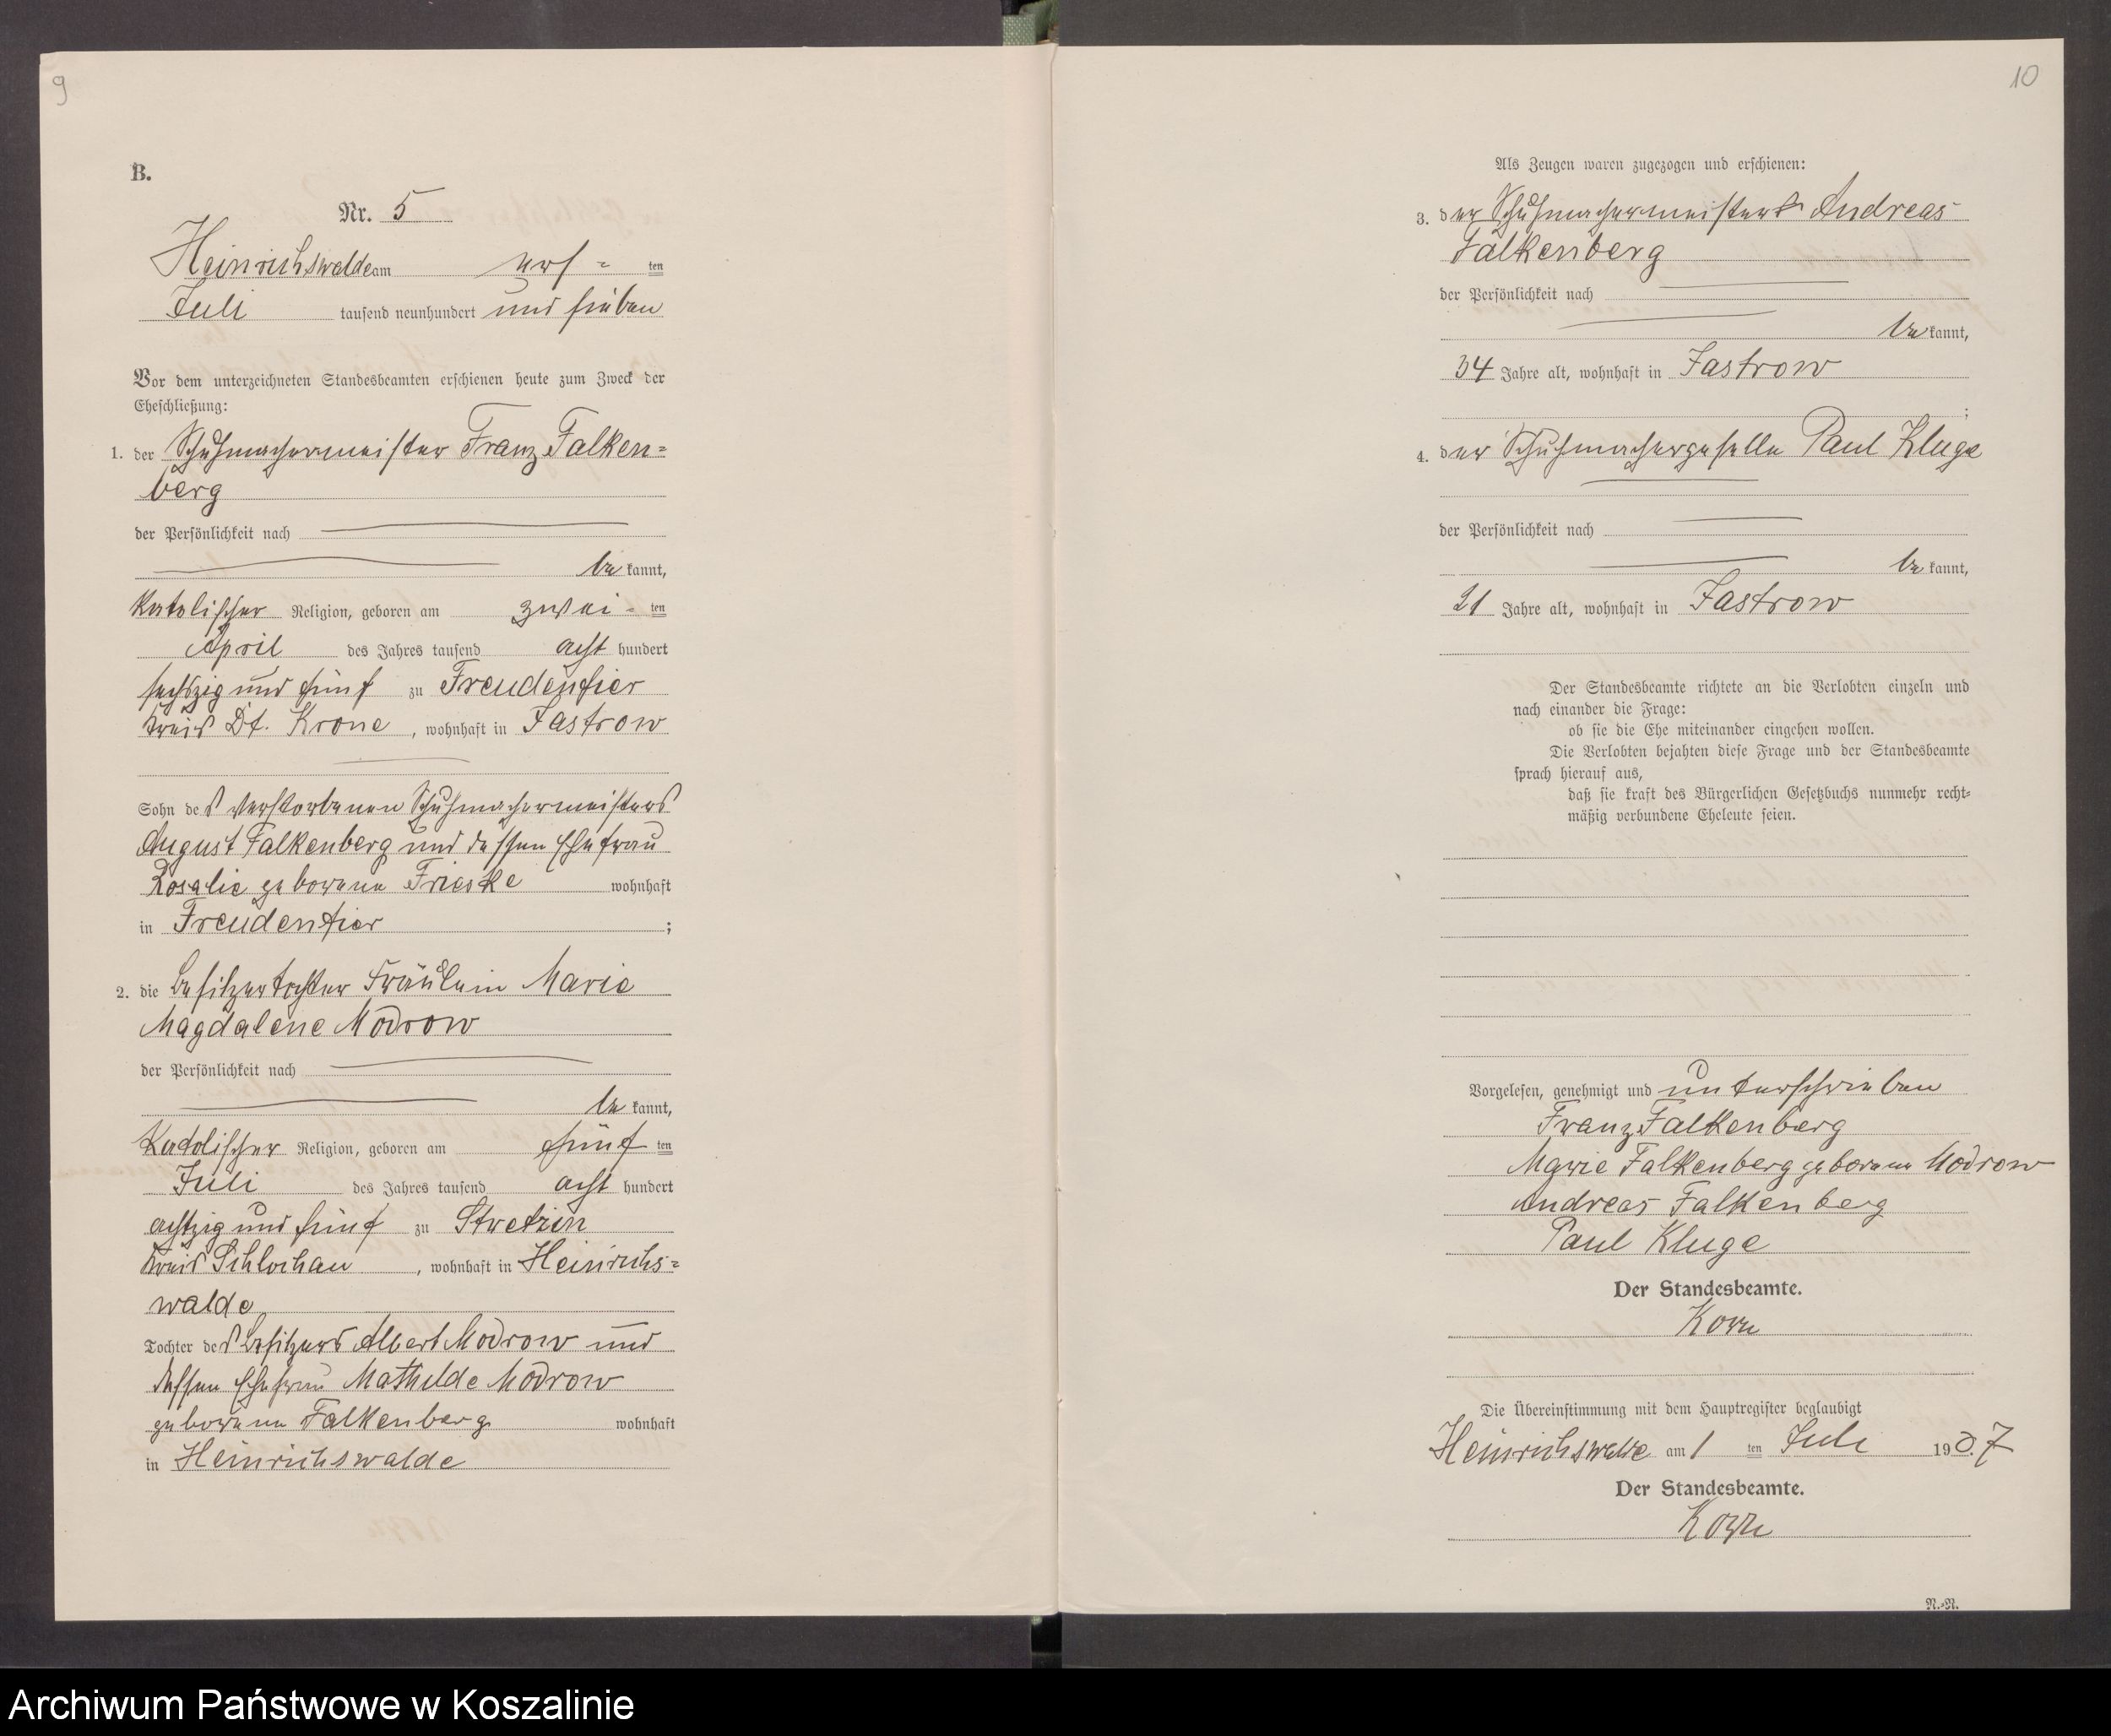 9
B.
Nr. 5
Heinrichswalde am ersten
Juli tausend neunhundert und sieben
Vor dem unterzeichneten Standesbeamten erschienen heute zum Zweck der
Eheschließung:
1. der Schuhmachermeister Franz Falken=
berg
der Persönlichkeit nach
be kannt,
katolischer Religion, geboren am zwei=ten
April des Jahres tausend acht hundert
sechszig und fünf zu Freudenfier
Kreis Dt. Krone, wohnhaft in Jastrow
Sohn des verstorbenen Schuhmachermeisters
August Falkenberg und dessen Ehefrau
Rosalie geborene Frieske wohnhaft
in Freudenfier ;
2. die Besitzertochter Fräulein Marie
Magdalene Modrow
der Persönlichkeit nach
be kannt,
Katolischer Religion, geboren am fünf ten
Juli des Jahres tausend acht hundert
achtzig und fünf zu Stretzin
Kreis Schlochau, wohnhaft in Heinrichs=
walde
Tochter des Besitzers Albert Modrow und
dessen Ehefrau Mathilde Modrow
geborene Falkenberg wohnhaft
in Heinrichswalde
10
Als Zeugen waren zugezogen und erschienen:
3. der Schuhmachermeister Andreas
Falkenberg
der Persönlichkeit nach
be kannt,
34 Jahre alt, wohnhaft in Jastrow
;
4. der Schuhmachergeselle Paul Kluge
der Persönlichkeit nach
be kannt,
21 Jahre alt, wohnhaft in Jastrow
Der Standesbeamte richtete an die Verlobten einzeln und
nach einander die Frage:
ob sie die Ehe miteinander eingehen wollen.
Die Verlobten bejahten diese Frage und der Standesbeamte
sprach hierauf aus,
daß sie kraft des Bürgerlichen Gesetzbuchs nunmehr recht=
mäßig verbundene Eheleute seien.
Vorgelesen, genehmigt und unterschrieben
Franz Falkenberg
Marie Falkenberg geborene Modrow
Andreas Falkenberg
Paul Kluge
Der Standesbeamte.
Korn
Die Übereinstimmung mit dem Hauptregister beglaubigt
Heinrichswalde am 1 ten Juli 190.7
Der Standesbeamte.
Korn
N.=N.
Archiwum Państwowe w Koszalinie